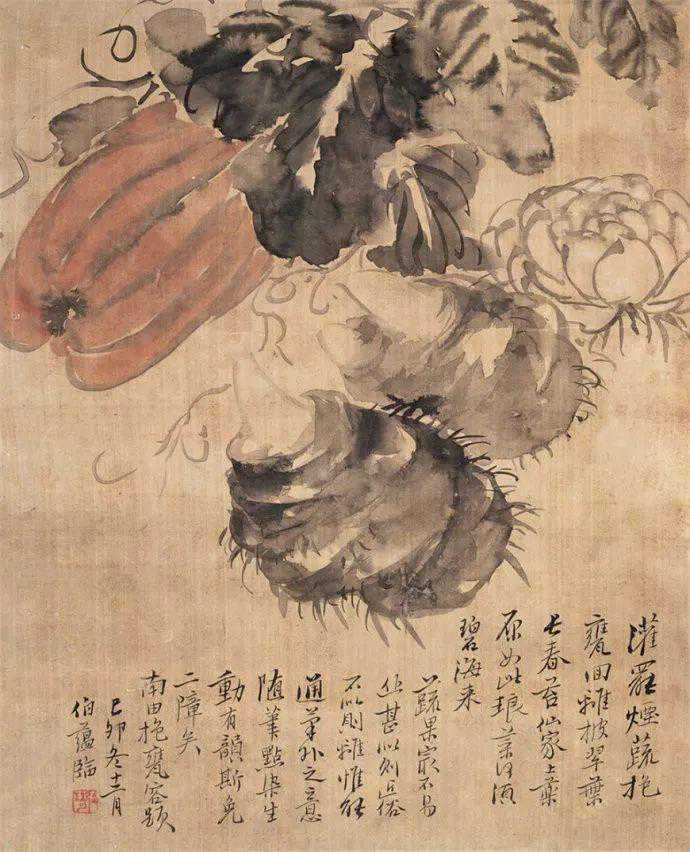 灌罷煙蔬抱
甕回雜披翠葉
長春苔仙家上藥
原如此琅何須
碧海来
蔬果最不易
作甚似則近俗
不似則離惟能
通筆外之意
随筆點染生
動有韻斯免
二障矣
南田抱甕客題
己卯冬十二月
伯蘊臨